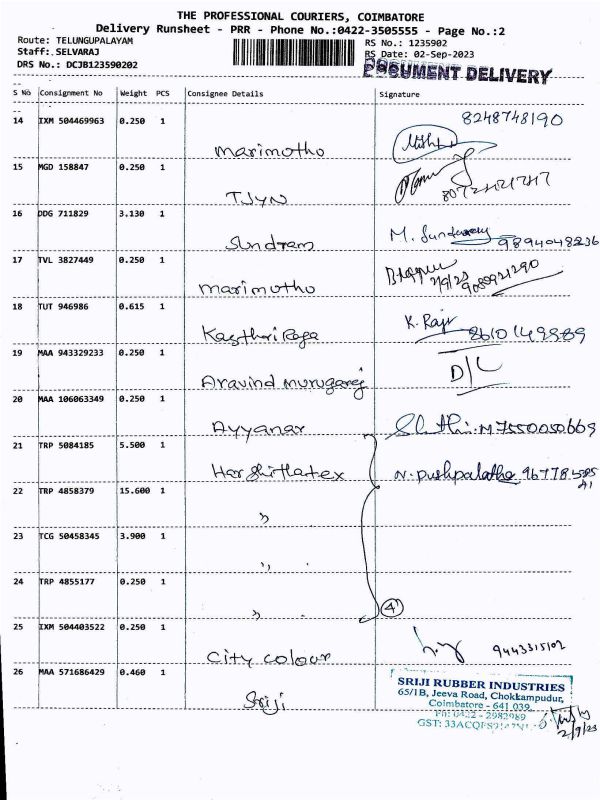 THE PROFESSIONAL COURIERS, COIMBATORE
Delivery Runsheet - PRR - Phone No.:0422-3505555 - Page No.:2
Route: TELUNGUPALAYAM
Staff: SELVARAJ
DRS No.: DCJB123590202
RS No.: 1235902
RS Date: 02-Sep-2023
DOCUMENT DELIVERY
S No Consignment No Weight PCS Consignee Details Signature
14 IXM 504469963 0.250 1 8248748190
marimotho
15 MGD 158847 0.250 1
TJYN
16 DDG 711829 3.130 1 M. Sundaram
Sundram 9894048236
17 TVL 3827449 0.250 1
marimotho 2/9/23 9080921290
18 TUT 946986 0.615 1 K. Raji
Kasthuri Raga 8610149989
19 MAA 943329233 0.250 1 D/L
Aravind murugaraj
20 MAA 106063349 0.250 1
Ayyanar M 7550050669
21 TRP 5084185 5.500 1
Harshitlatex N. Pushpalatha
22 TRP 4858379 15.600 1
"
23 TCG 50458345 3.900 1
"
24 TRP 4855177 0.250 1
" 4
25 IXM 504403522 0.250 1
City colour 9443315102
26 MAA 571686429 0.460 1
Sriji
SRIJI RUBBER INDUSTRIES
65/1B, Jeeva Road, Chokkampudur,
Coimbatore - 641 039.
Ph: 0422 - 2982989
GST:
2/9/23